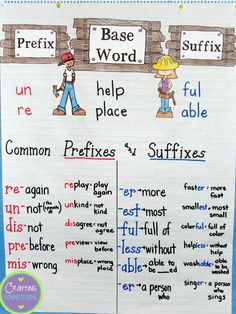 Prefix
Base
Word
Suffix
un
help
ful
re
place
able
Common Prefixes and Suffixes
re-again
replay • play again
un-not (the opposite of)
unkind • not kind
dis-not
disagree • not agree
pre-before
preview • view before
mis-wrong
misplace • wrong place
-er-more
faster • more fast
-est-most
smallest • most small
-ful-full of
colorful • full of color
-less-without
helpless • without help
-able-able to be __ed
washable • able to be washed
-er-a person who
singer • a person who sings
Crafting
Connections